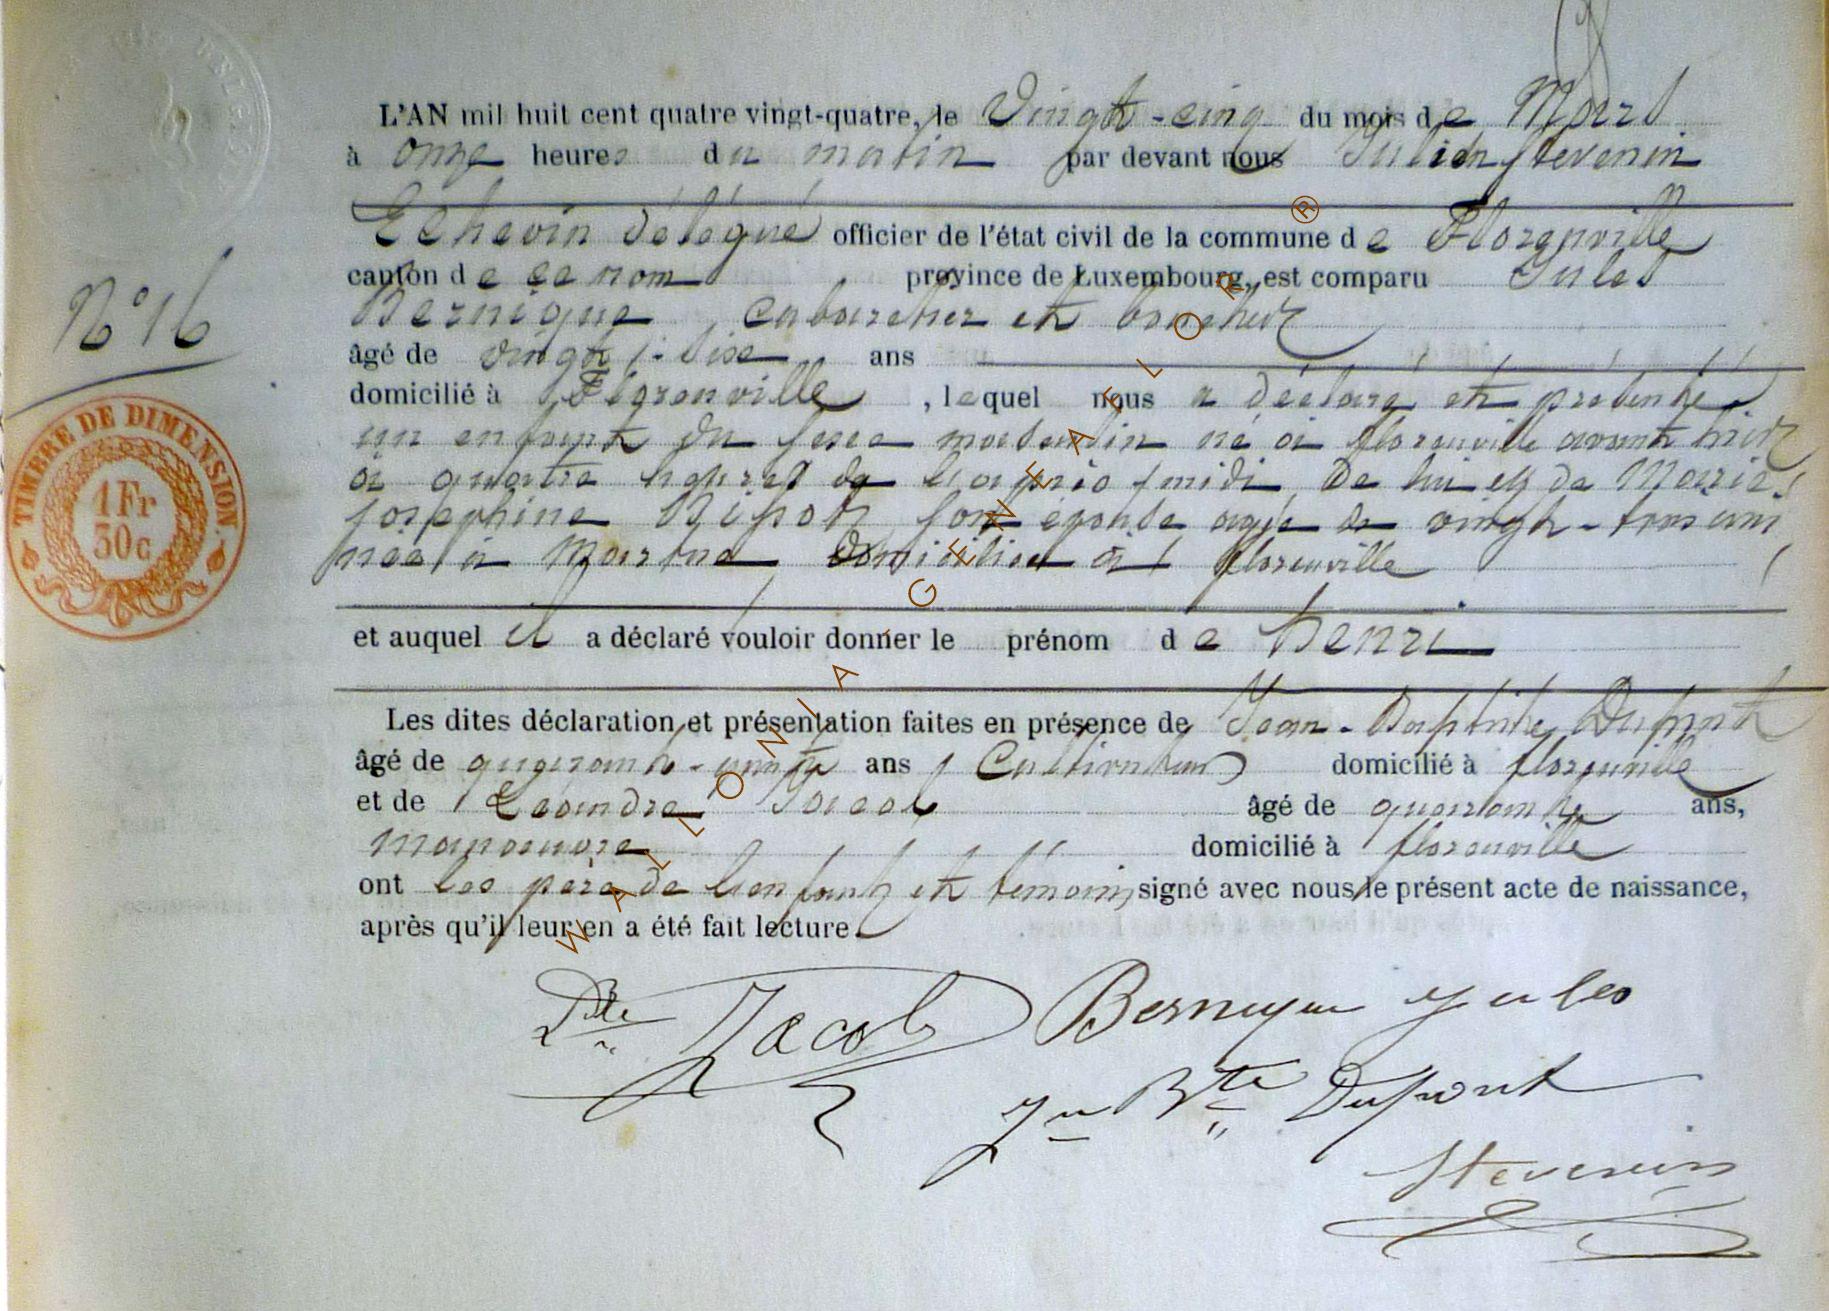 L'AN mil huit cent quatre vingt-quatre, le Vingt-cinq du mois de Mars
à onze heures du matin par devant nous Julien Stevenin
Echevin délégué officier de l'état civil de la commune de Florenville
canton de ce nom province de Luxembourg, est comparu Jules
N° 16
Bernique cabaretier et boucher
âgé de vingt-six ans
domicilié à Florenville, lequel nous a déclaré et présenté
un enfant du sexe masculin né à florenville avant hier
à quatre heures de l'après midi de lui et de Marie
Josephine son épouse agée de vingt-trois ans
née à domiciliée à florenville
TIMBRE DE DIMENSION.
1 Fr
30 c
et auquel il a déclaré vouloir donner le prénom de henri
Les dites déclaration et présentation faites en présence de Jean-Baptiste Dupont
âgé de ans Cultivateur domicilié à florenville
et de Jacob âgé de quarante ans,
manoeuvre domicilié à florenville
ont les père de l'enfant et témoins signé avec nous le présent acte de naissance,
après qu'il leur en a été fait lecture.
Jacob Bernique Jules
Jn Bte Dupont
Stevenin
WALLONIA GENEALOR ®